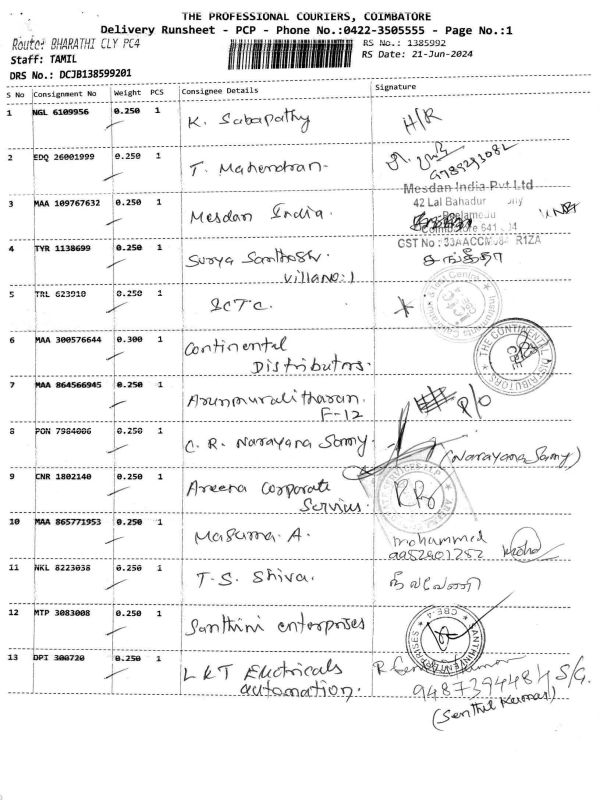 THE PROFESSIONAL COURIERS, COIMBATORE
Delivery Runsheet - PCP - Phone No.:0422-3505555 - Page No.:1
Route: BHARATHI CLY PC4
RS No.: 1385992
Staff: TAMIL
RS Date: 21-Jun-2024
DRS No.: DCJB138599201
S No Consignment No Weight PCS Consignee Details Signature
1 NGL 6109956 0.250 1 K. Sabapathy H/R
2 EDQ 26001999 0.250 1 T. Mahendran.
Mesdan India Pvt Ltd
3 MAA 109767632 0.250 1 Mesdan India. 42 Lal Bahadur
641
GST No : 33AACCM
R1ZA
4 TYR 1138699 0.250 1 Surya Santhosh. சங்கீதா
Villano:1
5 TRL 623910 0.250 1 ICTC.
6 MAA 300576644 0.300 1 Continental
Distributors. THE CONTINENTAL DISTRIBUTORS
7 MAA 864566945 0.250 1 Arunmuralitharan. P/O
F-12
8 PON 7984006 0.250 1 C. R. Narayana Samy. (Narayana Samy)
9 CNR 1802140 0.250 1 Areena Corporate
Servius.
10 MAA 865771953 0.250 1 Masurna A. mohammed
9952901252
11 NKL 8223038 0.250 1 T. S. Shiva.
12 MTP 3083008 0.250 1 Santhini enterprises SANTHINI ENTERPRISES CBE-4
13 DPI 300720 0.250 1 LKT Electricals
automation. 9487394484 S/G.
(Senthil Kumar)